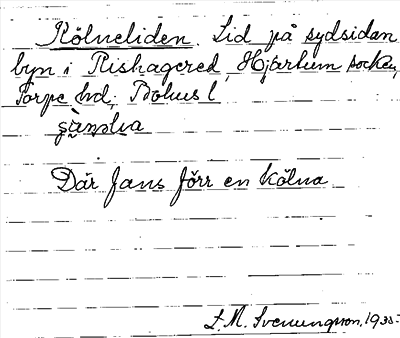 Kölneliden. Lid på sydsidan
byn i Rishagered, Hjärtum socken,
Torpe hd, Bohus l
Där fans förr en kölna
L. M. Svenungsson, 1935